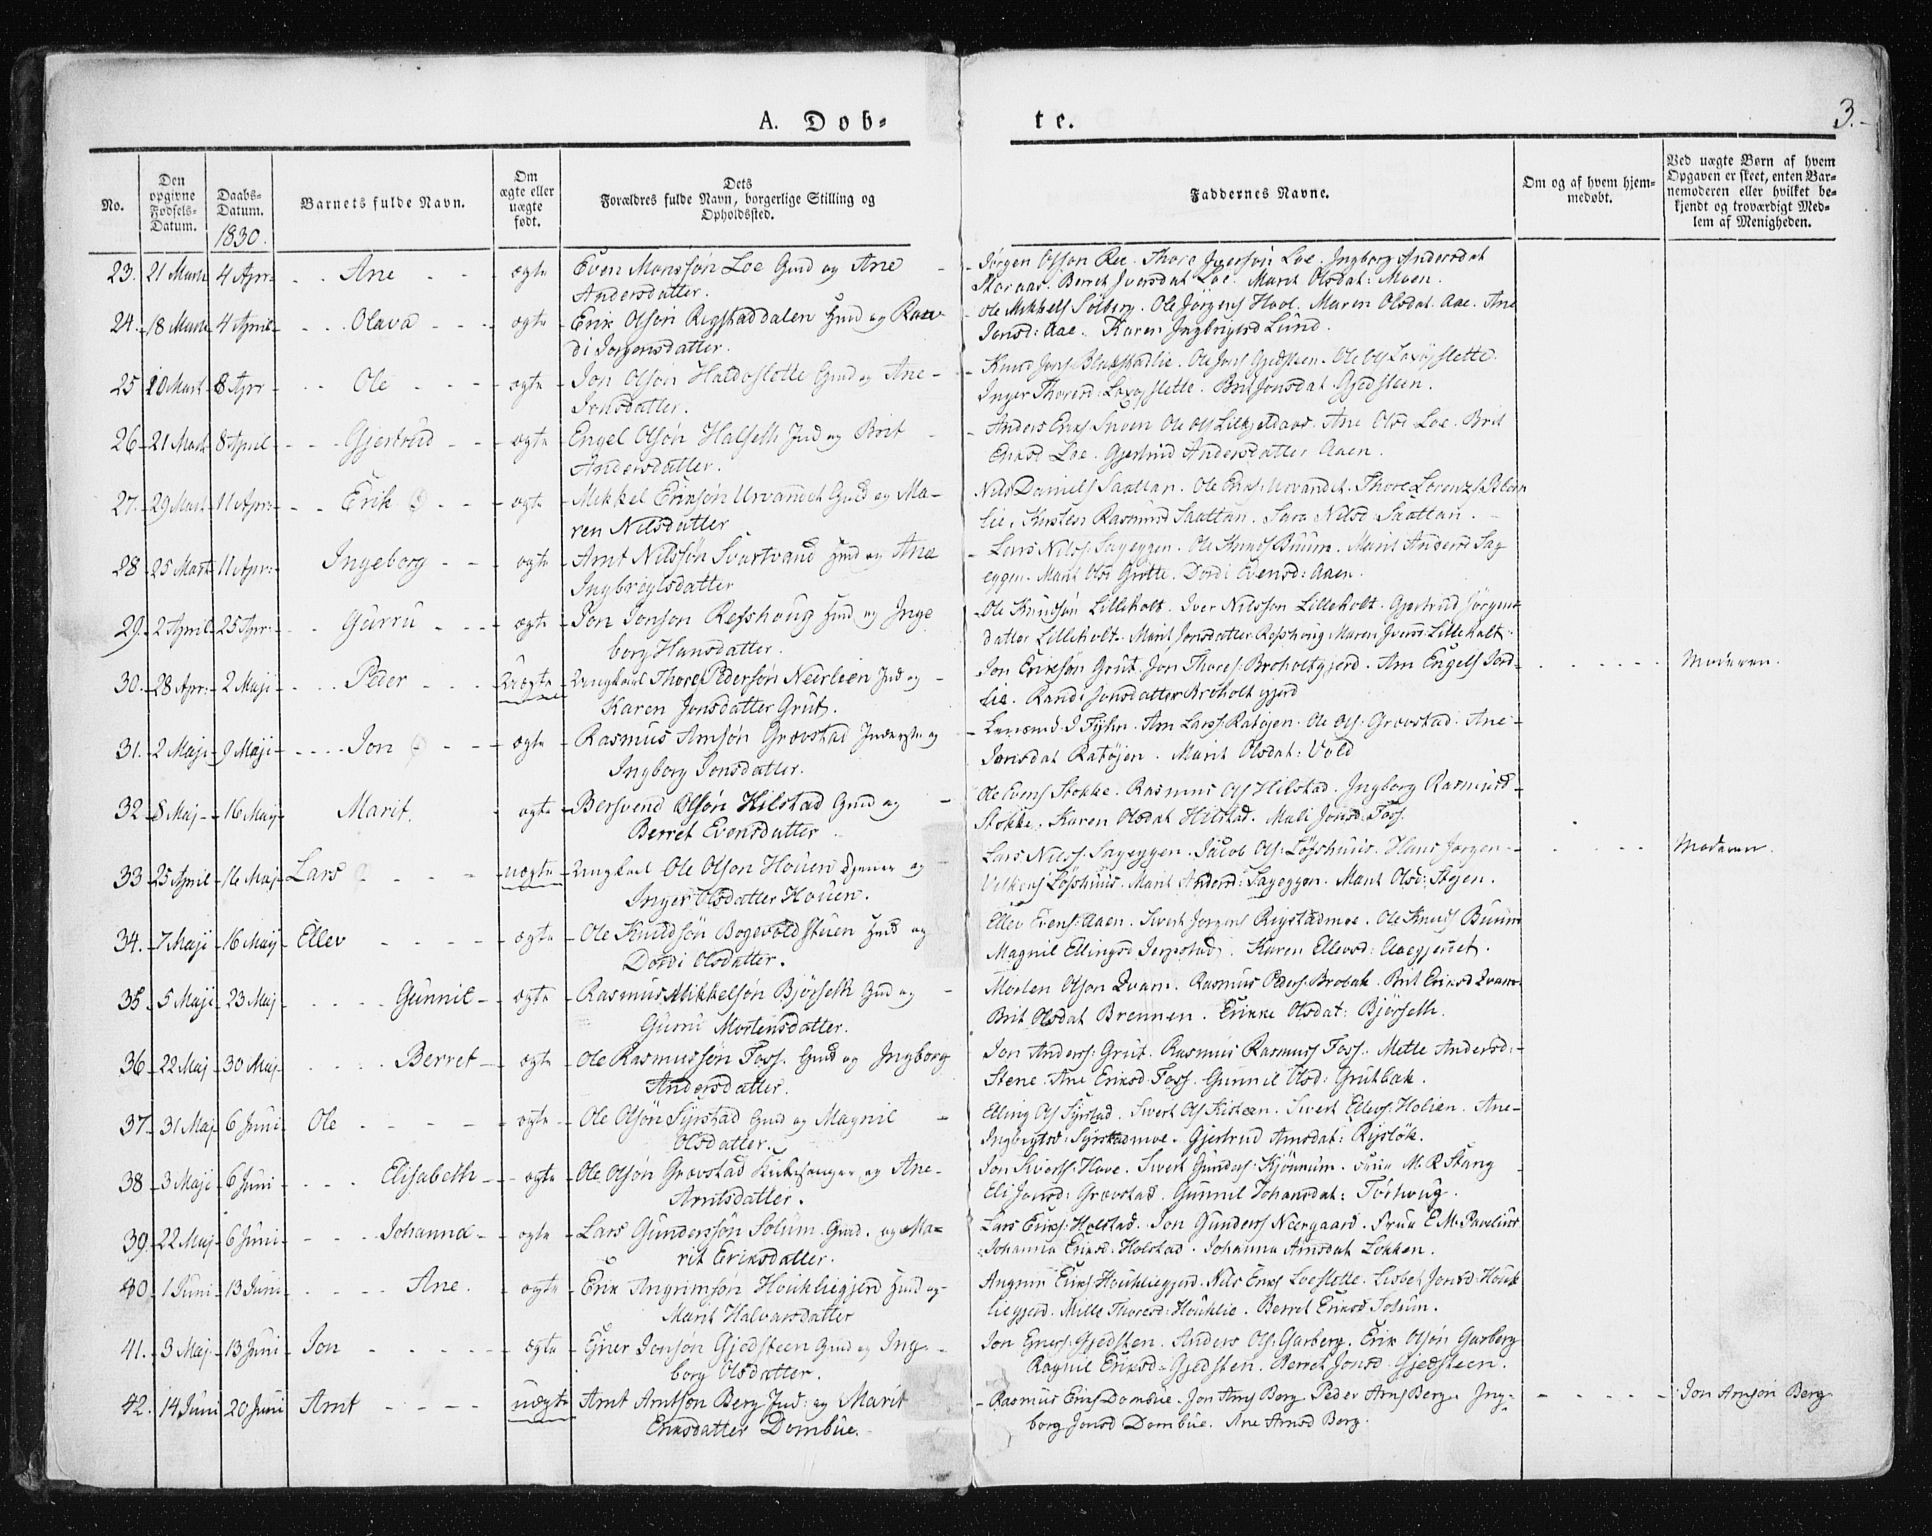 A. Døb-
te.
3.
No.
Den opgivne Fødsels-Datum.
Daabs-Datum. 1830.
Barnets fulde Navn.
Om ægte eller uægte født.
Dets Forældres fulde Navn, borgerlige Stilling og Opholdssted.
Faddernes Navne.
Om og af hvem hjemmedøbt.
Ved uægte Børn af hvem Opgaven er skeet, enten Barnemoderen eller hvilket bekjendt og troværdigt Medlem af Menigheden.
23. 21 Marts 4 Apr: Ane ægte Even Monssøn Loe Gmd og Ane
Andersdatter.
Jørgen Olsøn Ree. Thore Iversøn Loe. Ingborg Andersdat
Storaas. Berret Iversdat Loe. Marit Olsdat: Moen.
24. 18 Marts 4 April Olava ægte Erik Olson Rigstaddalen Hmd og Ran
di Jorgensdatter.
Ole Mikkels Solberg. Ole Jörgens Hool. Maren Olsdat Aae. Ane
Jonsd: Aae. Karen Ingbrigtsd Lund.
25 10 Mart 8 Apr Ole ægte Jon Olsön Haldoslette Gmd og Ane
Jonsdatter.
Ole Jons Gjedsteen. Ole Ols
Inger Thoresd: Brit Jonsdat Gjedsteen.
26 21 Mart 8 April Gjertrud ægte Engel Olsön Halseth Ind og Brit
Andersdatter.
Anders Eriks Snoen Ole Ols Ane Olsd Loe. Brit
Eriksd Loe. Gjertrud Andersdatter Aaen.
27. 29 Mart 11 Apr: Erik ægte Mikkel Eriksön Urvandet Gmd og Ma-
ren Nilsdatter
Nils Daniels Saattan. Ole Eriks Urvandet. Thore Lorenzs
lie. Kirsten Rasmusd Saattan. Sara Nilsd Saattan.
28 25 Mart 11 Apr: Ingeborg ægte Arnt Nilssön Svartvand Hmd og Ane
Ingbrigtsdatter
Lars Nilss: Sageggen. Ole Knuds Buum. Marit Andersd Sag
eggen. Marit Olsd Grötte. Dordi Evensd: Aaen.
29. 2 April 25 Apr: Gurru ægte Jon Jonson Refshoug Hmd og Inge
borg Hansdatter.
Ole Knudsøn Lilleholt. Iver Nilsson Lilleholt. Gjertrud Jörgens
datter Lilleholt. Marit Jonsdatter Refshoug. Maren Iversd Lilleholt.
30. 28 Apr: 2 Maji Peder Uægte Ungkarl Thore Pedersøn Neerlien Ind og
Karen Jonsdatter Grut.
Jon Eriksøn Grut. Jon Thores: Broholtgjerd. Arn Engels Jord-
lie. Randi Jonsdatter Broholtgjerd
Moderen.
31. 2 Maji 9 Maji Jon ægte Rasmus Arnsøn Grovstad Inderste og
Ingborg Jonsdatter.
Lensmd I Fyhn. Arn Larss: Ratøjen. Ole Ols: Grovstad. Ane
Jonsdat Ratøjen. Marit Olsdat: Vold
32 8 Maj 16 Maj Marit. ægte Bersvend Olsön Hilstad Gmd og
Berret Evensdatter
Ole Evens Stokke. Rasmus Ols Hilstad. Ingborg Rasmusd
Stokke. Karen Olsdat Hilstad. Mali Jonsd: Foss.
33 25 April 16 Maj Lars uægte Ungkarl Ole Olson Houen tjener og
Inger Olsdatter Houen.
Lars Nilss: Sageggen. Jacob Ols: Löfshuus. Hans Jorgen
Löfshuus. Marit Andersd: Sageggen. Marit Olsd: Stejen.
Moderen.
34. 7 Maji 16 Maij Ellev ægte Ole Knudsön Bogevoldstuen Hmd og
Dordi Olsdatter.
Ellev Evens: Aaen. Sivert Jorgens Rigstadmoe. Ole Knuds Buum
Magnil Ellingsd Jerpstad. Karen Ellevsd: Aaegjerdet.
35. 5 Maji 23 Maj Gunnil ægte Rasmus Mikkelsøn Bjørseth Gmd og
Gurru Mortensdatter.
Morten Olson Qvam. Rasmus Peders: Brobak. Brit Eriksd Qvam
Brit Olsdat Brennen. Erikke Olsdat: Bjørseth.
36 22 Maj 30 Maj Berret ægte Ole Rasmussøn Foss. Gmd og Ingborg
Andersdatter.
Jon Anderss: Grut. Rasmus Rasmuss Foss: Mette Andersd:
Stene. Ane Eriksd Foss. Gunnil Olsd: Grutbak.
37. 31 Maj 6 Juni Ole ægte Ole Olsøn Syrstad Gmd og Magnil
Olsdatter.
Elling Ols Syrstad. Sivert Ols Sivert Ellevs: Holien. Ane
Ingbrigtsd: Syrstadmoe. Gjertrud Arnsdat: Risløk.
38 3 Maji 6 Juni Elisabeth ægte Ole Olsøn Grovstad Kirkesanger og Ane
Arntsdatter.
Jon Siverts: Hove. Sivert Gunders: Kjönnum. Frue M. R. Stang
Eli Jonsd: Grovstad. Gunnil Johansdat: Torhoug.
39 22 Maj 6 Juni Johanna ægte Lars Gunderssön Solum Gmd. og Ma-
rit Eriksdatter.
Lars Eriks: Holstad. Jon Gunders Neergaard. Frue E. M. Pavelius
Johanna Eriksd: Holstad. Johanna Arnsdat Løkken.
40. 1 Juni 13 Juni Ane. ægte Erik Angrimsøn Houkliegjerd Hmd og
Marit Halvarsdatter
Angrim Eriks Houkliegjerd. Nils Eriks Loeslette. Lisbet Jonsd: Houk
liegjerd. Mille Thoresd: Houklie. Berret Eriksd Solum.
41. 3 Maj 13 Juni Jon ægte Ejner Jonsøn Gjedsteen Gmd og Ing
borg Olsdatter.
Jon Eners: Gjedsten. Anders Ols: Garberg. Erik Olsøn Garberg
Ragnil Eriksd. Gjedsten. Berret Jonsd: Gjedsteen.
42. 14 Juni 20 Juni Arnt uægte Arnt Arntsøn Berg Ind: og Marit
Eriksdatter Dombue.
Rasmus Eriks Dombue. Jon Arns Berg. Peder Arns Berg. Ing-
borg Jonsd Dombue. Ane Arnsd Berg.
Jon Arnsøn Berg